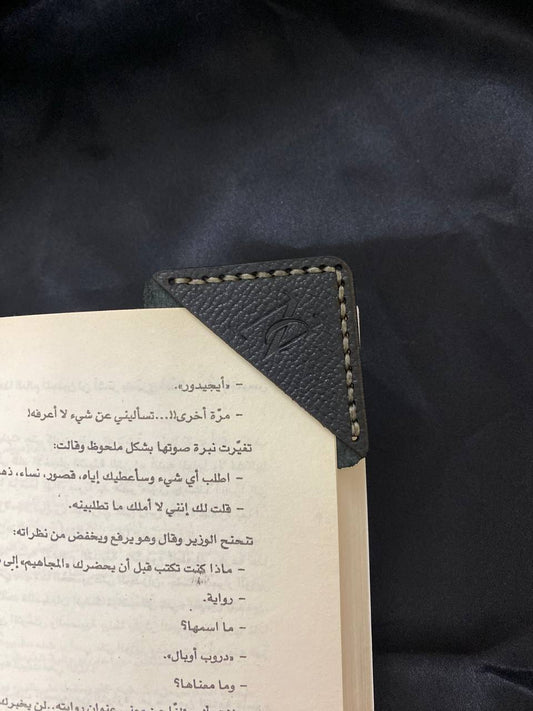 - «أيجيدور».
- مرّة أخرى!!...تسأليني عن شيء لا أعرفه!
تغيّرت نبرة صوتها بشكل ملحوظ وقالت:
- اطلب أي شيء وسأعطيك إياه، قصور، نساء،
- قلت لك إنني لا أملك ما تطلبينه.
تنحنح الوزير وقال وهو يرفع ويخفض من نظراته:
- ماذا كنت تكتب قبل أن يحضرك «المجاهيم» إلى
- رواية.
- ما اسمها؟
- «دروب أوبال».
- وما معناها؟
عنوان روايته..لن يخبرك